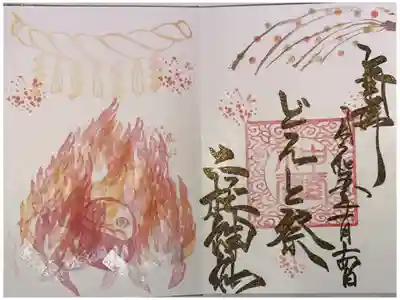 奉拝
令和 年一月十四日
どんと祭
二柱神社